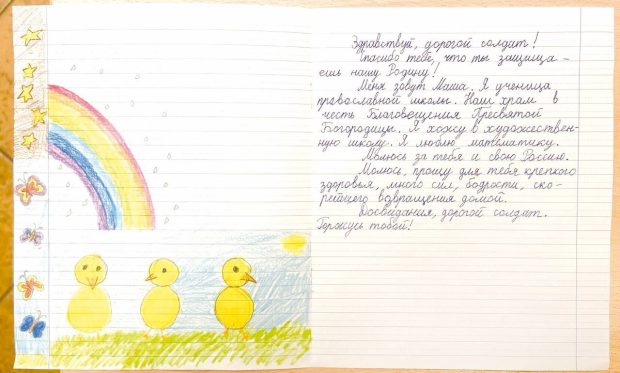 Здравствуй, дорогой солдат!
Спасибо тебе, что ты защища-
ешь нашу Родину!
Меня зовут Маша. Я ученица
православной школы. Наш храм в
честь Благовещения Пресвятой
Богородицы. Я хожу в художествен-
ную школу. Я люблю математику.
Молюсь за тебя и свою Россию.
Молюсь, прошу для тебя крепкого
здоровья, много сил, бодрости, ско-
рейшего возвращения домой.
Досвидания, дорогой солдат.
Горжусь тобой!